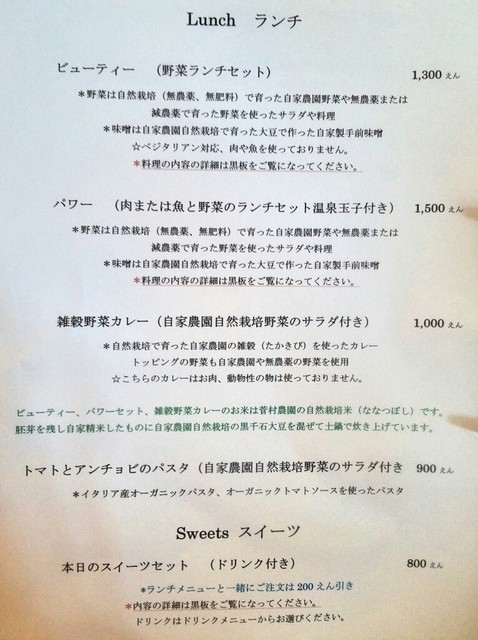 Lunch ランチ
ビューティー （野菜ランチセット） 1,300 えん
＊野菜は自然栽培（無農薬、無肥料）で育った自家農園野菜や無農薬または
減農薬で育った野菜を使ったサラダや料理
＊味噌は自家農園自然栽培で育った大豆で作った自家製手前味噌
☆ベジタリアン対応、肉や魚を使っておりません。
＊料理の内容の詳細は黒板をご覧になってください。
パワー （肉または魚と野菜のランチセット温泉玉子付き） 1,500 えん
＊野菜は自然栽培（無農薬、無肥料）で育った自家農園野菜や無農薬または
減農薬で育った野菜を使ったサラダや料理
＊味噌は自家農園自然栽培で育った大豆で作った自家製手前味噌
＊料理の内容の詳細は黒板をご覧になってください。
雑穀野菜カレー（自家農園自然栽培野菜のサラダ付き） 1,000 えん
＊自然栽培で育った自家農園の雑穀（たかきび）を使ったカレー
トッピングの野菜も自家農園や無農薬の野菜を使用
☆こちらのカレーはお肉、動物性の物は使っておりません。
ビューティー、パワーセット、雑穀野菜カレーのお米は菅村農園の自然栽培米（ななつぼし）です。
胚芽を残し自家精米したものに自家農園自然栽培の黒千石大豆を混ぜて土鍋で炊き上げています。
トマトとアンチョビのパスタ（自家農園自然栽培野菜のサラダ付き 900 えん
＊イタリア産オーガニックパスタ、オーガニックトマトソースを使ったパスタ
Sweets スイーツ
本日のスイーツセット （ドリンク付き） 800 えん
＊ランチメニューと一緒にご注文は 200 えん引き
＊内容の詳細は黒板をご覧になってください。
ドリンクはドリンクメニューからお選びください。